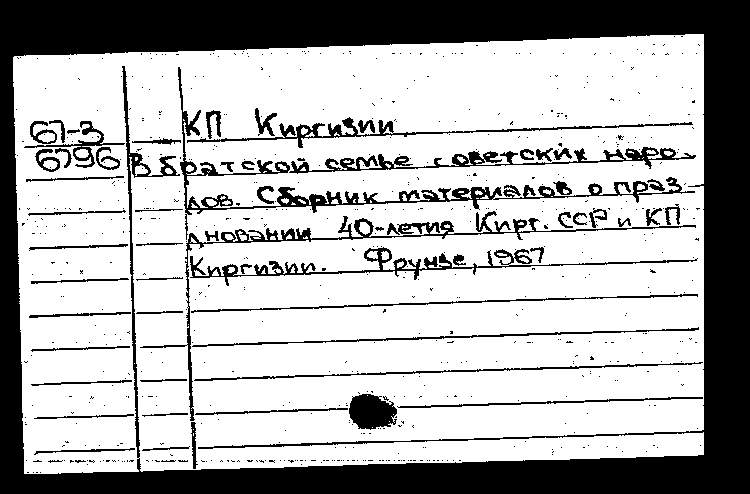 67-3 КП Киргизии
6796 В братской семье советских наро-
дов. Сборник материалов о праз-
дновании 40-летия Кирг. ССР и КП
Киргизии. Фрунзе, 1967